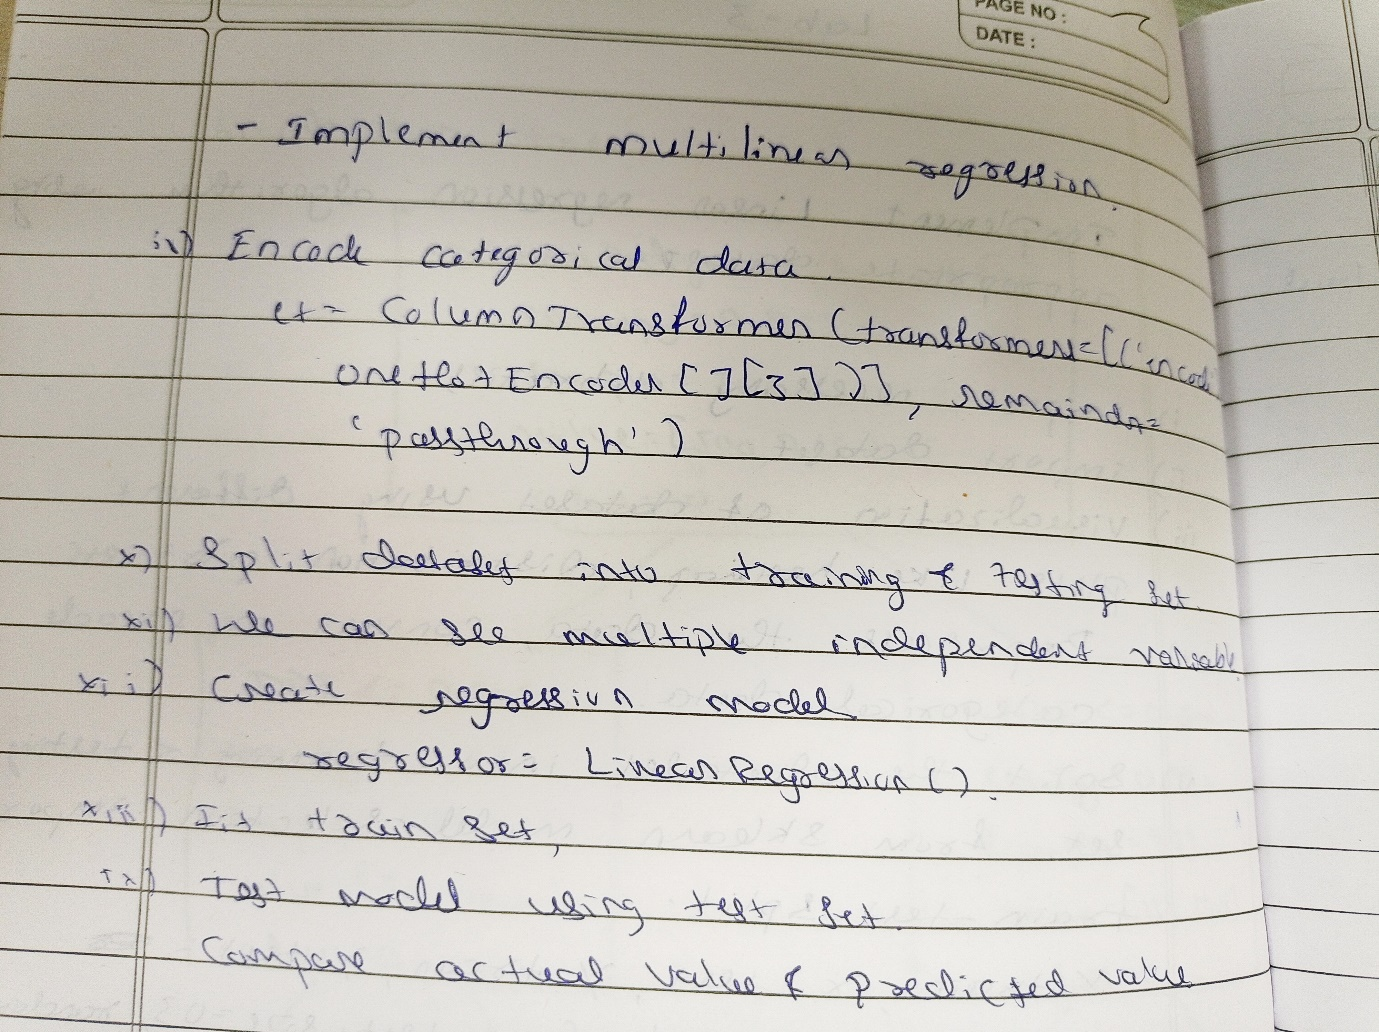 PAGE NO :
DATE :
- Implement multilinear regression.
iv) Encode categorical data.
ct = ColumnTransformer (transformers=[('encod
OneHotEncoder [ ] [3] )], remainder=
'passthrough' )
x) Split dataset into training & testing set
xi) We can see multiple independent variable
xii) Create regression model
regressor = Linear Regression ( ).
xiii) Fit train set,
Test model using test set.
Compare actual value & predicted value